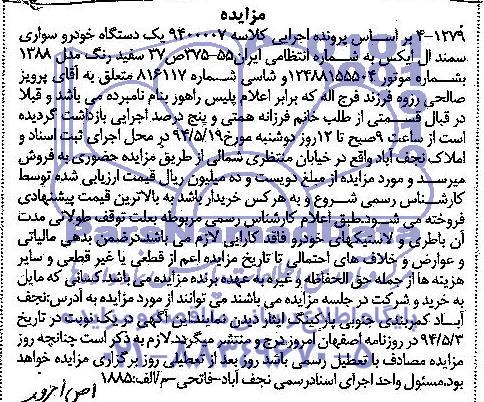 مزایده
۴-۱۲۷۹ بر اساس پرونده اجرایی کلاسه ۹۴۰۰۰۰۷ یک دستگاه خودرو سواری
سمند ال ایکس به شماره انتظامی ایران۵۵-۳۷۵ص۳۷ سفید رنگ مدل ۱۳۸۸
بشماره موتور ۱۲۴۸۸۱۵۵۵۰۴و شاسی شماره ۸۱۶۱۱۷ متعلق به آقای پرویز
صالحی رزوه فرزند فرج اله که برابر اعلام پلیس راهور بنام نامبرده می باشد و قبلا
در قبال قسمتی از طلب خانم فرزانه همتی و پنج درصد اجرایی بازداشت گردیده
است از ساعت ۹صبح تا ۱۲روز دوشنبه مورخ۹۴/۵/۱۹ در محل اجرای ثبت اسناد و
املاک نجف آباد واقع در خیابان منتظری شمالی از طریق مزایده حضوری به فروش
میرسد و مورد مزایده از مبلغ دویست و ده میلیون ریال قیمت ارزیابی شده توسط
کارشناس رسمی شروع و به هر کس خریدار باشد به بالاترین قیمت پیشنهادی
فروخته می شود.طبق اعلام کارشناس رسمی مربوطه بعلت توقف طولانی مدت
آن باطری و لاستیکهای خودرو فاقد کارایی لازم می باشد.درضمن بدهی مالیاتی
و عوارض و خلاف های احتمالی تا تاریخ مزایده اعم از قطعی یا غیر قطعی و سایر
هزینه ها از جمله حق الحفاظه و غیره به عهده برنده مزایده می باشد.کسانی که مایل
به خرید و شرکت در جلسه مزایده می باشند می توانند از مورد مزایده به آدرس:نجف
آباد کمربندی جنوبی پارکینگ ایثار دیدن نمایند.این آگهی در یک نوبت در تاریخ
۹۴/۵/۳ در روزنامه اصفهان امروز درج و منتشر میگردد.لازم به ذکر است چنانچه روز
مزایده مصادف با تعطیل رسمی باشد روز بعد از تعطیلی روز برگزاری مزایده خواهد
بود.مسئول واحد اجرای اسنادرسمی نجف آباد-فاتحی-م/الف:۱۸۸۵
ParsNamadData